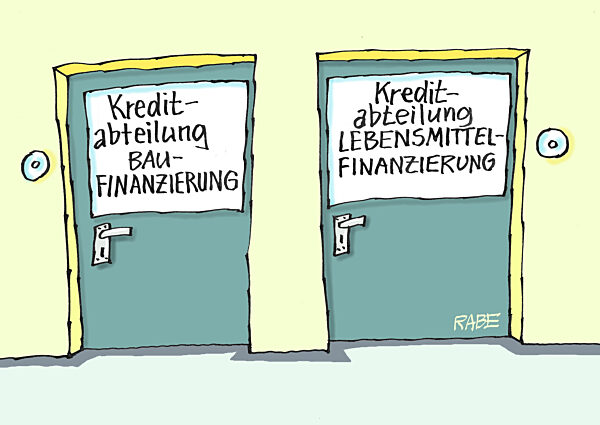 Kredit-
abteilung
BAU-
FINANZIERUNG
Kredit-
abteilung
LEBENSMITTEL-
FINANZIERUNG
RABE